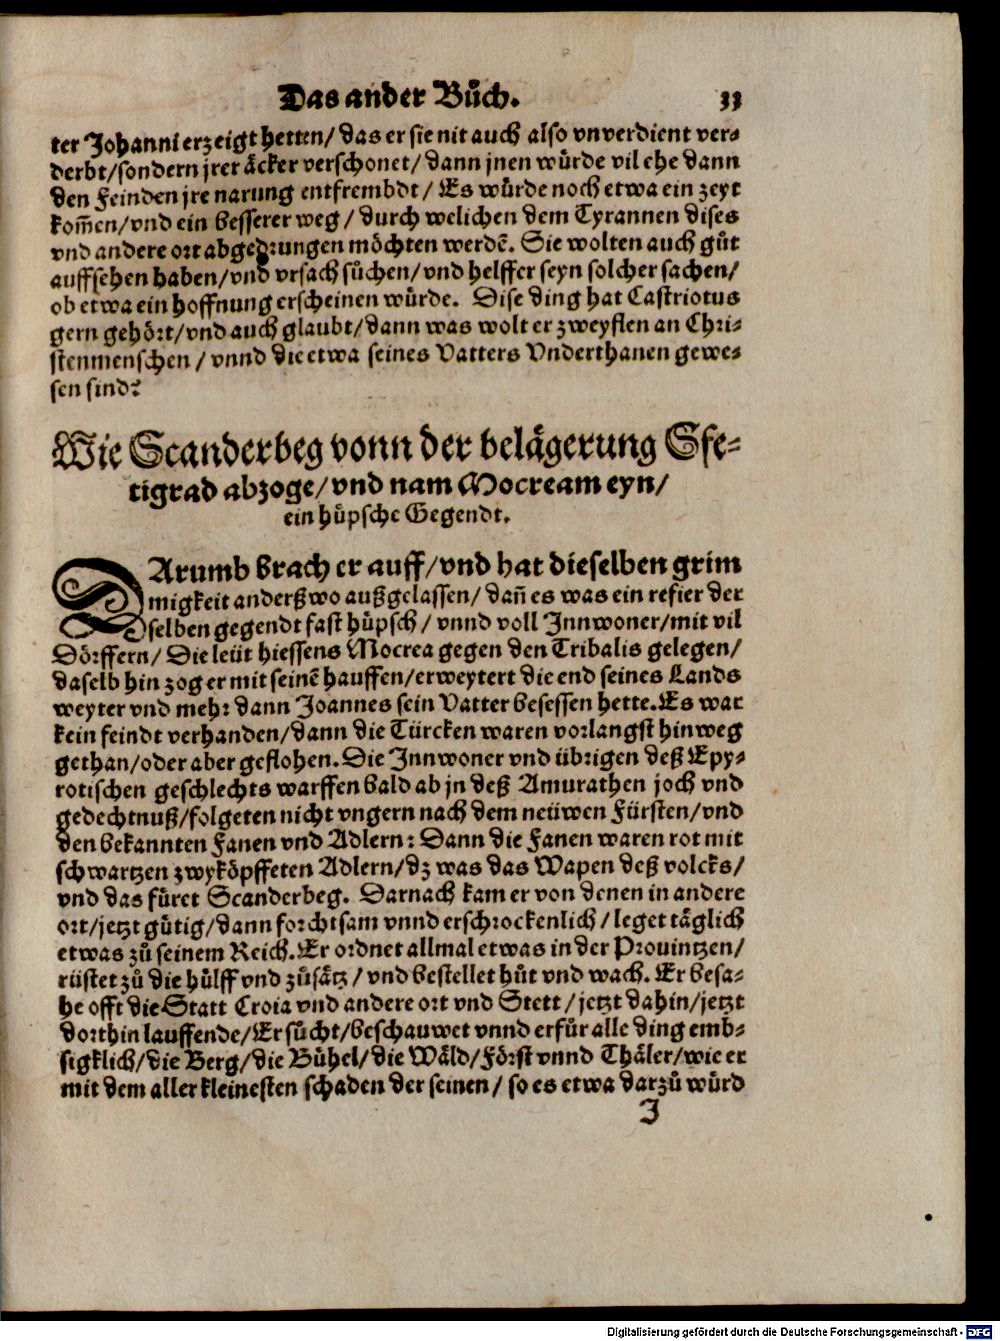 Das ander Bůch. 33
ter Johanni erzeigt hetten/ das er sie nit auch also vnverdient ver-
derbt/sondern jrer äcker verschonet/ dann jnen würde vil ehe dann
den Feinden jre narung entfrembdt/ Es würde noch etwa ein zeyt
kom̃en/vnd ein besserer weg/ durch welichen dem Tyrannen dises
vnd andere ort abgedrungen möchten werdẽ. Sie wolten auch gůt
auffsehen haben/vnd vrsach sůchen/vnd helffer seyn solcher sachen/
ob etwa ein hoffnung erscheinen würde. Dise ding hat Castriotus
gern gehört/vnd auch glaubt/dann was wolt er zweyflen an Chri-
stenmenschen/ vnnd die etwa seines Vatters Vnderthanen gewe-
sen sind?
Wie Scanderbeg vonn der belägerung Sfe-
tigrad abzoge/ vnd nam Mocream eyn/
ein hüpsche Gegendt.
DArumb brach er auff/vnd hat dieselben grim
migkeit anderßwo außgelassen/ dañ es was ein refier der
selben gegendt fast hüpsch/ vnnd voll Innwoner/mit vil
Dörffern/ Die leüt hiessens Mocrea gegen den Tribalis gelegen/
daselb hin zog er mit seinẽ hauffen/erweytert die end seines Lands
weyter vnd mehr dann Joannes sein Vatter besessen hette. Es war
kein feindt verhanden/dann die Türcken waren vorlangst hinweg
gethan/oder aber geflohen. Die Innwoner vnd übrigen deß Epy-
rotischen geschlechts warffen bald ab jn deß Amurathen joch vnd
gedechtnuß/folgeten nicht vngern nach dem neüwen Fürsten/vnd
den bekannten Fanen vnd Adlern: Dann die Fanen waren rot mit
schwartzen zwyköpffeten Adlern/dz was das Wapen deß volcks/
vnd das füret Scanderbeg. Darnach kam er von denen in andere
ort/jetzt gütig/dann forchtsam vnnd erschrockenlich/ leget täglich
etwas zů seinem Reich. Er ordnet allmal etwas in der Prouintzen/
rüstet zů die hülff vnd zůsätz/ vnd bestellet hůt vnd wach. Er besa-
he offt die Statt Croia vnd andere ort vnd Stett/ jetzt dahin/jetzt
dorthin lauffende/ Er sůcht/beschauwet vnnd erfůr alle ding emb-
sigklich/die Berg/die Bühel/die Wäld/Först vnnd Thäler/wie er
mit dem aller kleinesten schaden der seinen/ so es etwa darzů würd
J
Digitalisierung gefördert durch die Deutsche Forschungsgemeinschaft - DFG